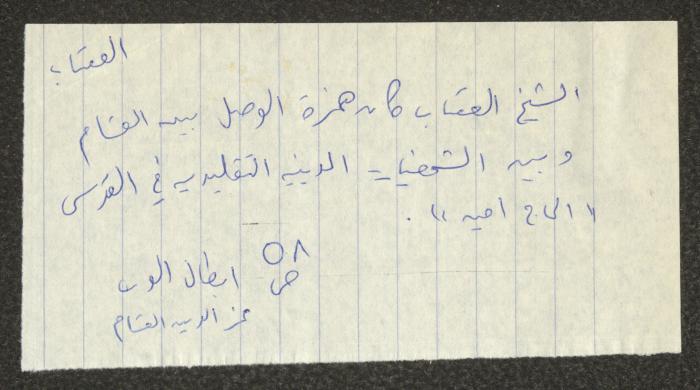 القصاب
الشيخ القصاب كان همزة الوصل بين القسام
وبين الشخصيات الدينيه التقليديه في القدس
"الحاج امين".
ص ٥٨ ابطال العرب
عز الدين القسام